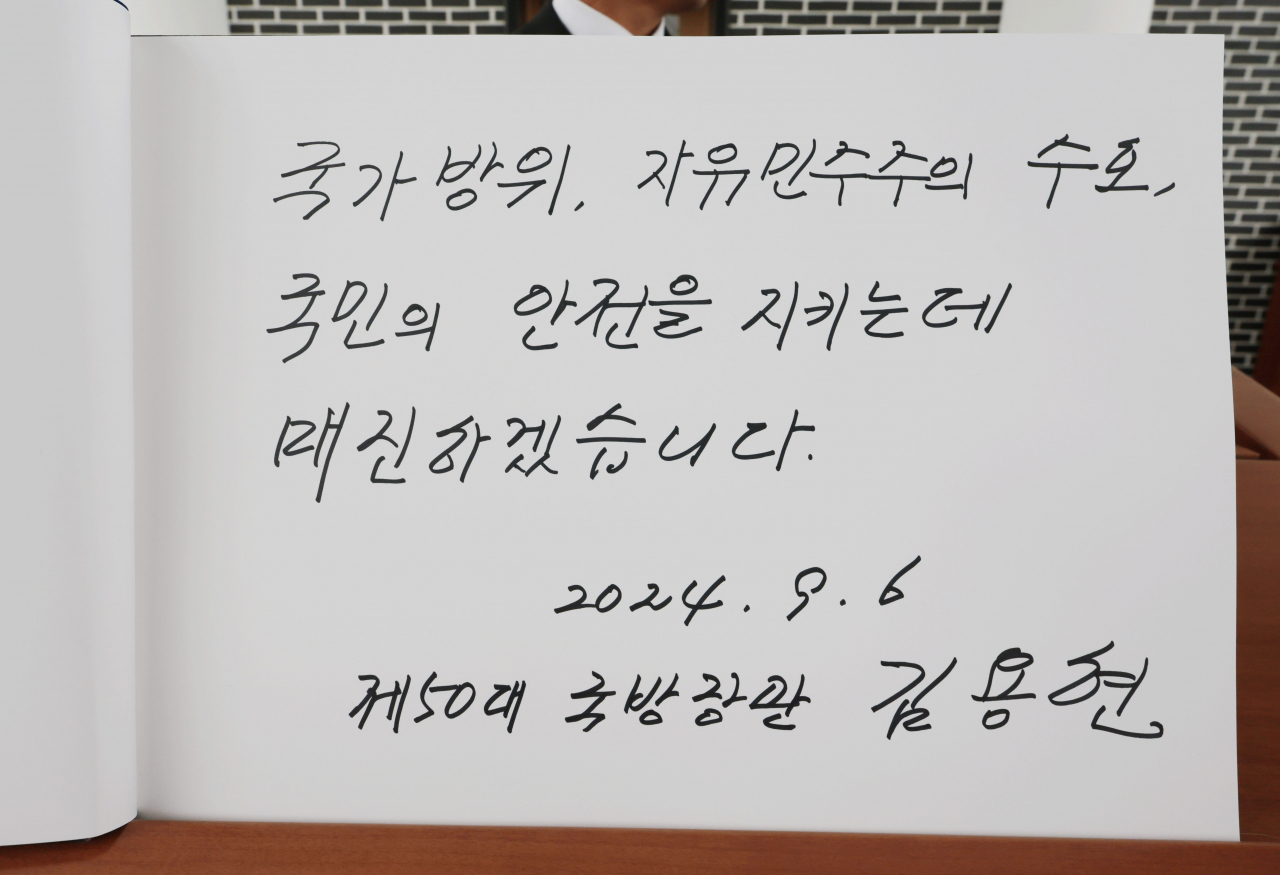 국가방위, 자유민주주의 수호,
국민의 안전을 지키는데
매진하겠습니다.
2024. 9. 6
제50대 국방장관 김용현